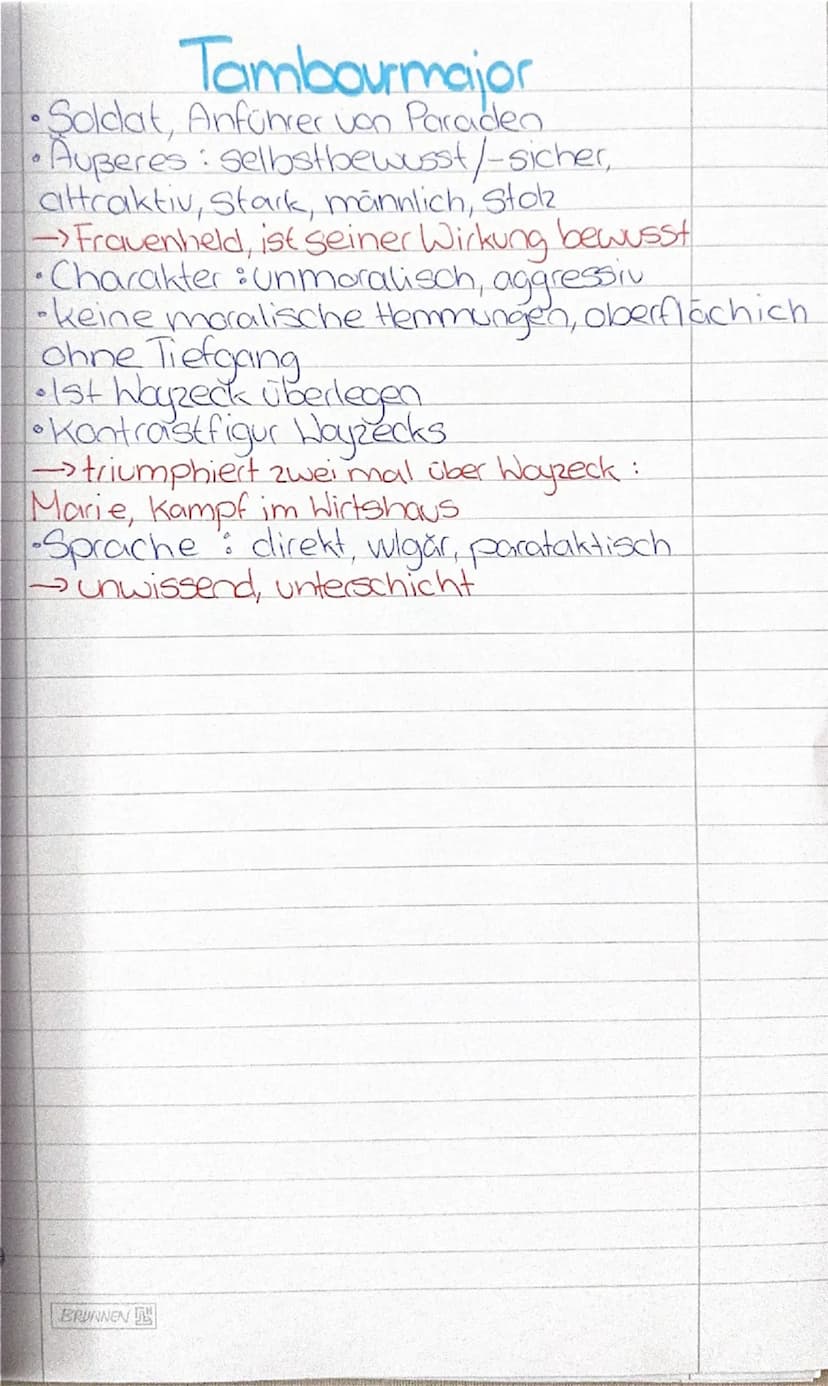 Tambourmajor
• Soldat, Anführer von Paraden
• Äußeres : selbstbewusst/-sicher,
attraktiv, stark, männlich, stolz
→ Frauenheld, ist seiner Wirkung bewusst
• Charakter : unmoralisch, aggressiv
• keine moralische Hemmungen, oberflächich
ohne Tiefgang
• Ist Woyzeck überlegen
• Kontrastfigur Woyzecks
→ triumphiert zwei mal über Woyzeck :
Marie, Kampf im Wirtshaus
• Sprache : direkt, vulgär, parataktisch
→ unwissend, unterschicht
BRUNNEN